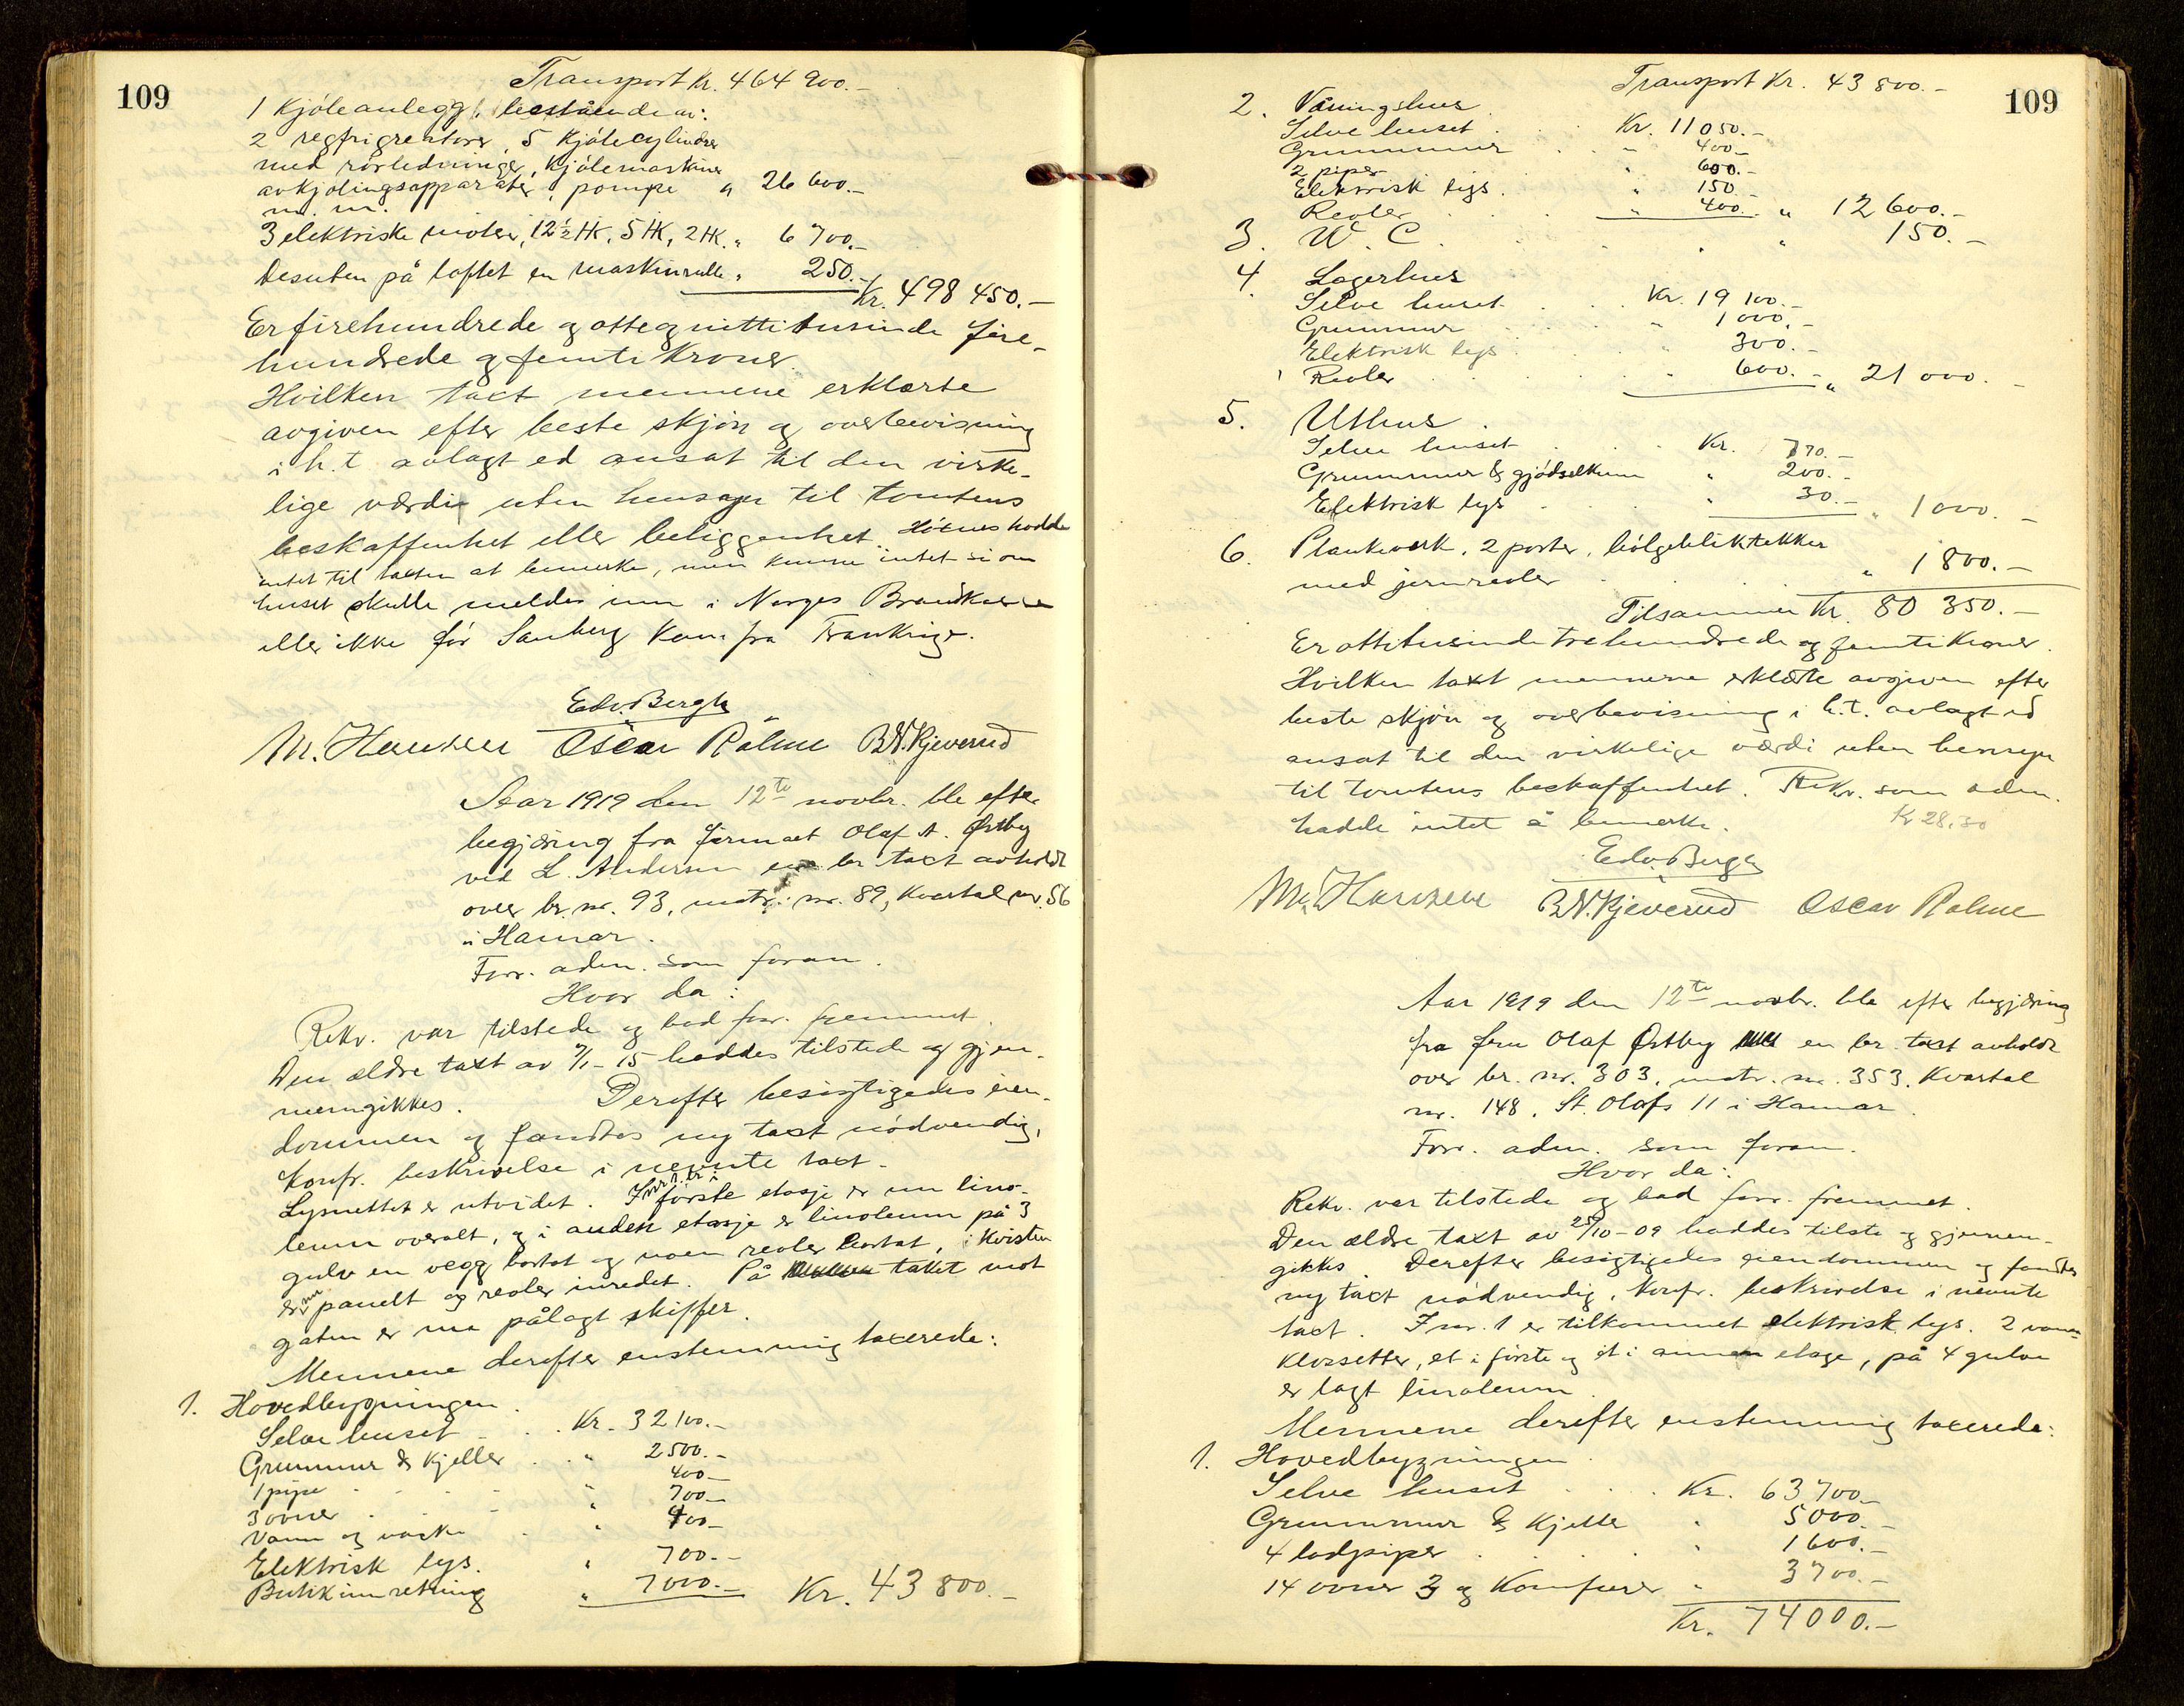 109
Transport Kr. 464 900.-
1 Kjöleanlegg, bestående av:
2 regfrigreatorer, 5 Kjölecylindre
med rörledninger, Kjölemaskine
avkjölingsapparater, pompe " 26 600.-
m. m.
3 elektriske motorer, 12½ HK, 5 HK, 2 HK. " 6 700.-
Desuten på loftet en maskinrulle " 250.-
Kr. 498 450.-
Er firehundrede og otteognittitusinde fire-
hundrede og femti Kroner.
Hvilken taxt mennene erklærte
avgiven efter beste skjön og overbevisning
i h.t. avlagt ed ansat til den virke-
lige værdi uten hensyn til tomtens
beskaffenhet eller beliggenhet. hadde
intet til taxten at bemerke, men kunne intet si om
huset skulle meldes inn i Norges Brandkasse
eller ikke för Sanberg kom fra Frankrige.
Edv. Bergh
M. Hansen Oscar Rölme B. N. Kjeverud
Aar 1919 den 12te novbr. ble efter
begjæring fra firmaet Olaf A. Østby
ved L. Andersen en br. taxt avholdt
over br. nr. 93, matr. nr. 89, Kvartal nr. 56
i Hamar.
Forr. adm. som foran.
Hvor da:
Rekv. var tilstede og bad forr. fremmet.
Den ældre taxt av 9/1-15 haddes tilstede og gjen-
nemgikkes. Derefter besigtigedes eien-
dommen og fandtes ny taxt nödvendig,
konfr. beskrivelse i nevnte taxt.
Lysnettet er utvidet. I nr. 1. er i förste etasje er nu lino-
leum overalt, og i anden etasje er linoleum på 3
gulv en vegg bortat og noen reoler bortat, i Kvisten
er nu panelt og reoler inredet. På taket mot
gaten er nu pålagt skiffer.
Mennene derefter enstemmig taxerede:
1. Hovedbygningen.
Selve huset . . Kr. 32 100.-
Grunnmur & Kjeller . . " 2 500.-
1 pipe . . " 400.-
3 ovner . . " 700.-
Vann og vaske . . " 400.-
Elektrisk lys. " 700.-
Butikinnretning " 7 000.- Kr. 43 800.-
109
Transport Kr. 43 800.-
2. Våningshus.
Selve huset . Kr. 11 050.-
Grunnmur . . " 400.-
2 piper " 600.-
Elektrisk lys. " 150.-
Reoler . . " 400.- " 12 600.-
3. W. C. . . " 150.-
4. Lagerhus
Selve huset . . Kr. 19 100.-
Grunnmur . . " 1 000.-
Elektrisk lys . . " 300.-
Reoler . . " 600.- " 21 000.-
5. Uthus.
Selve huset . . Kr. 770.-
Grunnmur & gjödselkum " 200.-
Elektrisk lys . " 30.- " 1 000.-
6. Plankeverk, 2 porter, bölgebliktekker
med jernreoler . " 1 800.-
Tilsammen Kr. 80 350.-
Er ottitusinde trehundrede og femti Kroner.
Hvilken taxt mennene erklærte avgiven efter
beste skjön og overbevisning i h.t. avlagt ed
ansat til den virkelige værdi uten hensyn
til tomtens beskaffenhet. Rekv. som adm.
hadde intet å bemerke. Kr 28,30
Edv. Bergh
M. Hansen B. N. Kjeverud Oscar Rölme
Aar 1919 den 12te novbr. ble efter begjæring
fra fru Olaf Østby en br. taxt avholdt
over br. nr. 303, matr. nr. 353. Kvartal
nr. 148, St. Olafs 11 i Hamar.
Forr. adm. som foran.
Hvor da:
Rekv. var tilstede og bad forr. fremmet.
Den ældre taxt av 25/10-09 haddes tilste og gjennem-
gikkes. Derefter besigtigedes eiendommen og fandtes
ny taxt nödvendig, konfr. beskrivelse i nevnte
taxt. I nr. 1 er tilkommet elektrisk lys. 2 vann-
klossetter, et i förste og et i annen etage, på 4 gulve
er lagt linoleum.
Mennene derefter enstemmig taxerede:
1. Hovedbygningen.
Selve huset . . . Kr. 63 700.-
Grunnmur & Kjeller " 5 000.-
4 lodpiper . . " 1 600.-
14 ovner og Komfurer " 3 700.-
Kr. 74 000.-